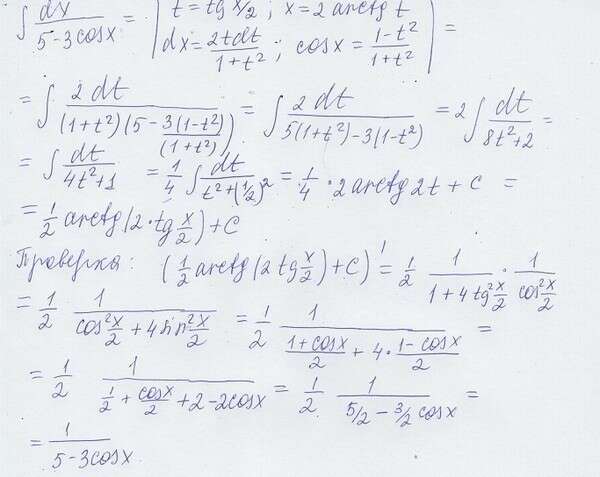 ∫ dx/(5-3cosx) = | t = tg x/2 ; x = 2 arctg t
dx = 2tdt/(1+t²) ; cosx = (1-t²)/(1+t²) | =
= ∫ 2dt/((1+t²)(5-3(1-t²)/(1+t²))) = ∫ 2dt/(5(1+t²)-3(1-t²)) = 2∫ dt/(8t²+2) =
= ∫ dt/(4t²+1) = 1/4 ∫ dt/(t²+(1/2)²) = 1/4 · 2 arctg 2t + C =
= 1/2 arctg(2·tg x/2) + C
Проверка: (1/2 arctg(2 tg x/2) + C)' = 1/2 1/(1+4tg² x/2) · 1/(cos² x/2)
= 1/2 1/(cos² x/2 + 4sin² x/2) = 1/2 1/((1+cosx)/2 + 4·(1-cosx)/2) =
= 1/2 1/(1/2 + cosx/2 + 2-2cosx) = 1/2 1/(5/2 - 3/2 cosx) =
= 1/(5-3cosx)